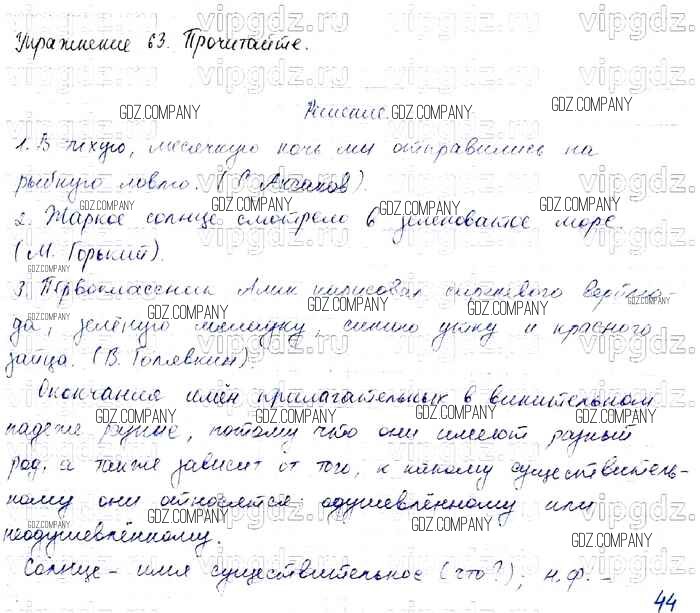 Упражнение 63. Прочитайте.
Решение.
1. В тихую, месячную ночь мы отправились на
рыбную ловлю. (С. Аксаков).
2. Жаркое солнце смотрело в зеленоватое море.
(М. Горький).
3. Первоклассник Алик нарисовал оранжевого верблю-
да, зелёную лягушку, синюю утку и красного
зайца. (В. Голявкин).
Окончания имён прилагательных в винительном
падеже разные, потому что они имеют разный
род, а также зависит от того, к какому существитель-
ному они относятся: одушевлённому или
неодушевлённому.
Солнце – имя существительное (что?), н.ф. –
44